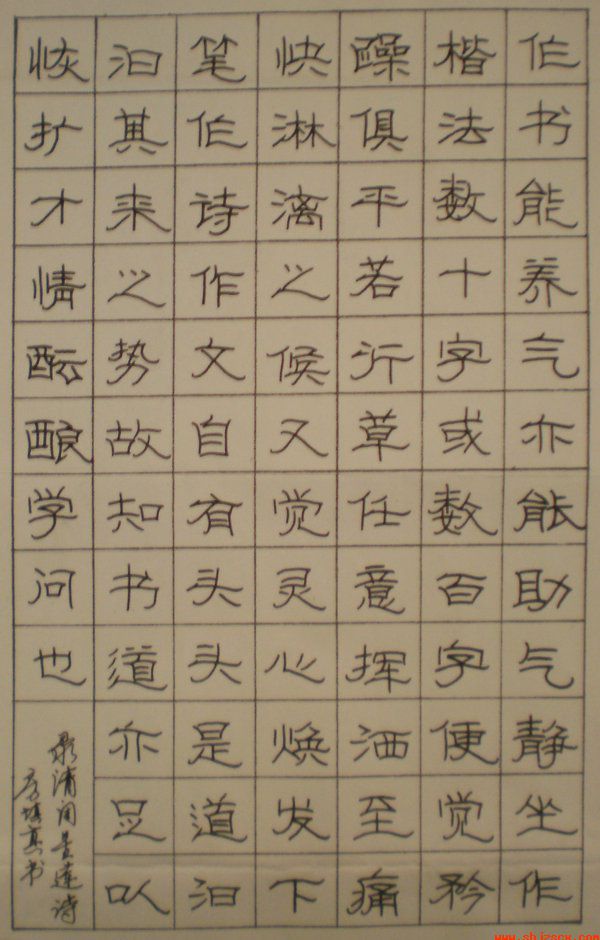 作书能养气亦能助气静坐作
楷法数十字或数百字便觉矜
躁俱平若行草任意挥洒至痛
快淋漓之候又觉灵心焕发下
笔作诗作文自有头头是道汩
汩其来之势故知书道亦足以
恢扩才情酝酿学问也
录清周星莲诗